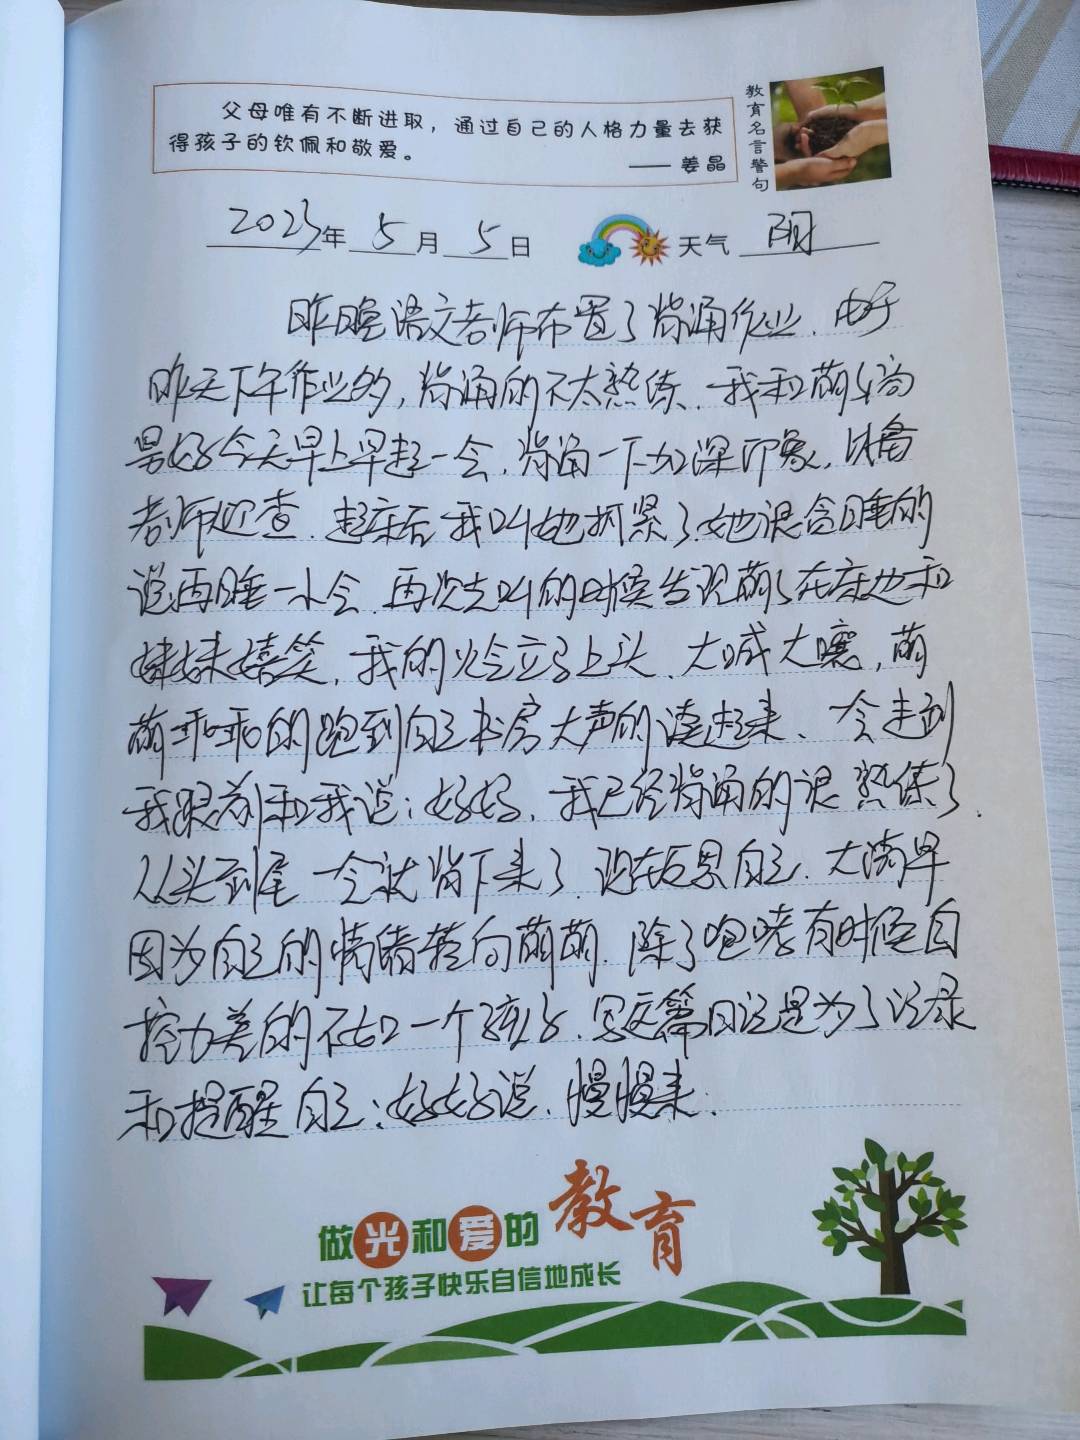 父母唯有不断进取，通过自己的人格力量去获
得孩子的钦佩和敬爱。
——姜晶
教育名言警句
2023年 5月 5日 天气 阴
昨晚语文老师布置了背诵作业，由于
昨天下午作业多，背诵的不太熟练，我和萌萌商
量好今天早上早起一会，背诵一下加深印象，以备
老师检查，起床后我叫她抓紧了，她很贪睡的
说再睡一小会，再次去叫的时候发现萌萌在床边和
妹妹嬉笑，我的火会立马上头，大喊大嚷，萌
萌乖乖的跑到自己书房大声的读起来、一会走到
我跟前和我说：妈妈，我已经背诵的很熟练了，
从头到尾一会就背下来了，现在反思自己，大清早
因为自己的情绪转向萌萌，除了咆哮有时候自
控力差的不如一个孩子，写这篇日记是为了记录
和提醒自己：好好说，慢慢来。
做光和爱的教育
让每个孩子快乐自信地成长